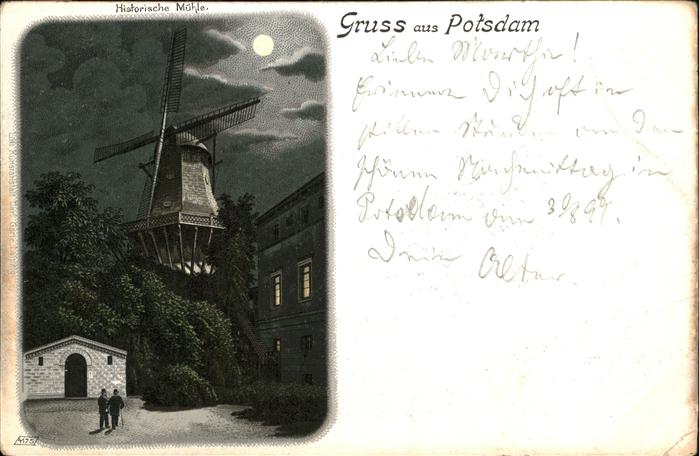 Historische Mühle.
Gruss aus Potsdam
Liebe Martha!
Erinnere Dich oft in
stillen Stunden an den
schönen Nachmittag in
Potsdam den 3/8 97.
Dein Alter.
1125